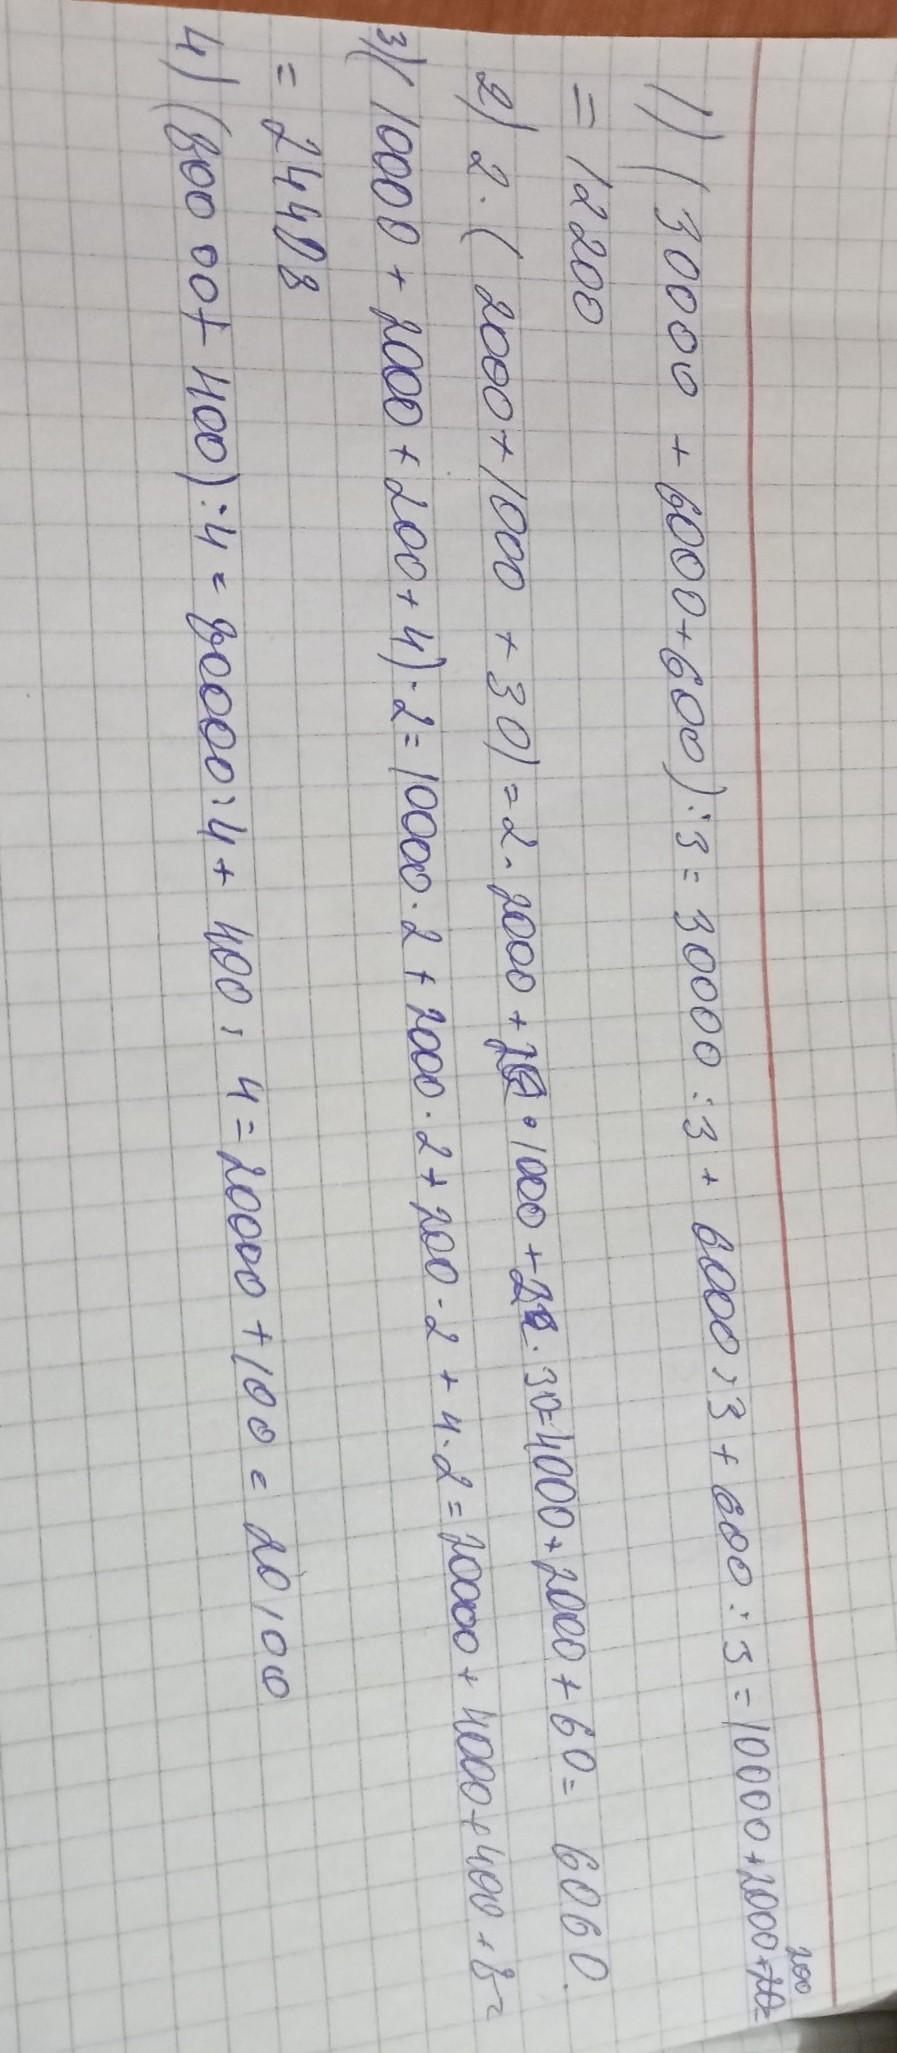 1) (30000 + 6000 + 600) : 3 = 30000 : 3 + 6000 : 3 + 600 : 3 = 10000 + 2000 + 200 =
= 12200
2) 2 · (2000 + 1000 + 30) = 2 · 2000 + 2 · 1000 + 2 · 30 = 4000 + 2000 + 60 = 6060.
3) (10000 + 2000 + 200 + 4) · 2 = 10000 · 2 + 2000 · 2 + 200 · 2 + 4 · 2 = 20000 + 4000 + 400 + 8 =
= 24408
4) (80000 + 400) : 4 = 80000 : 4 + 400 : 4 = 20000 + 100 = 20100